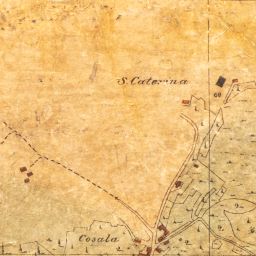 S. Caterina
60
Cosala